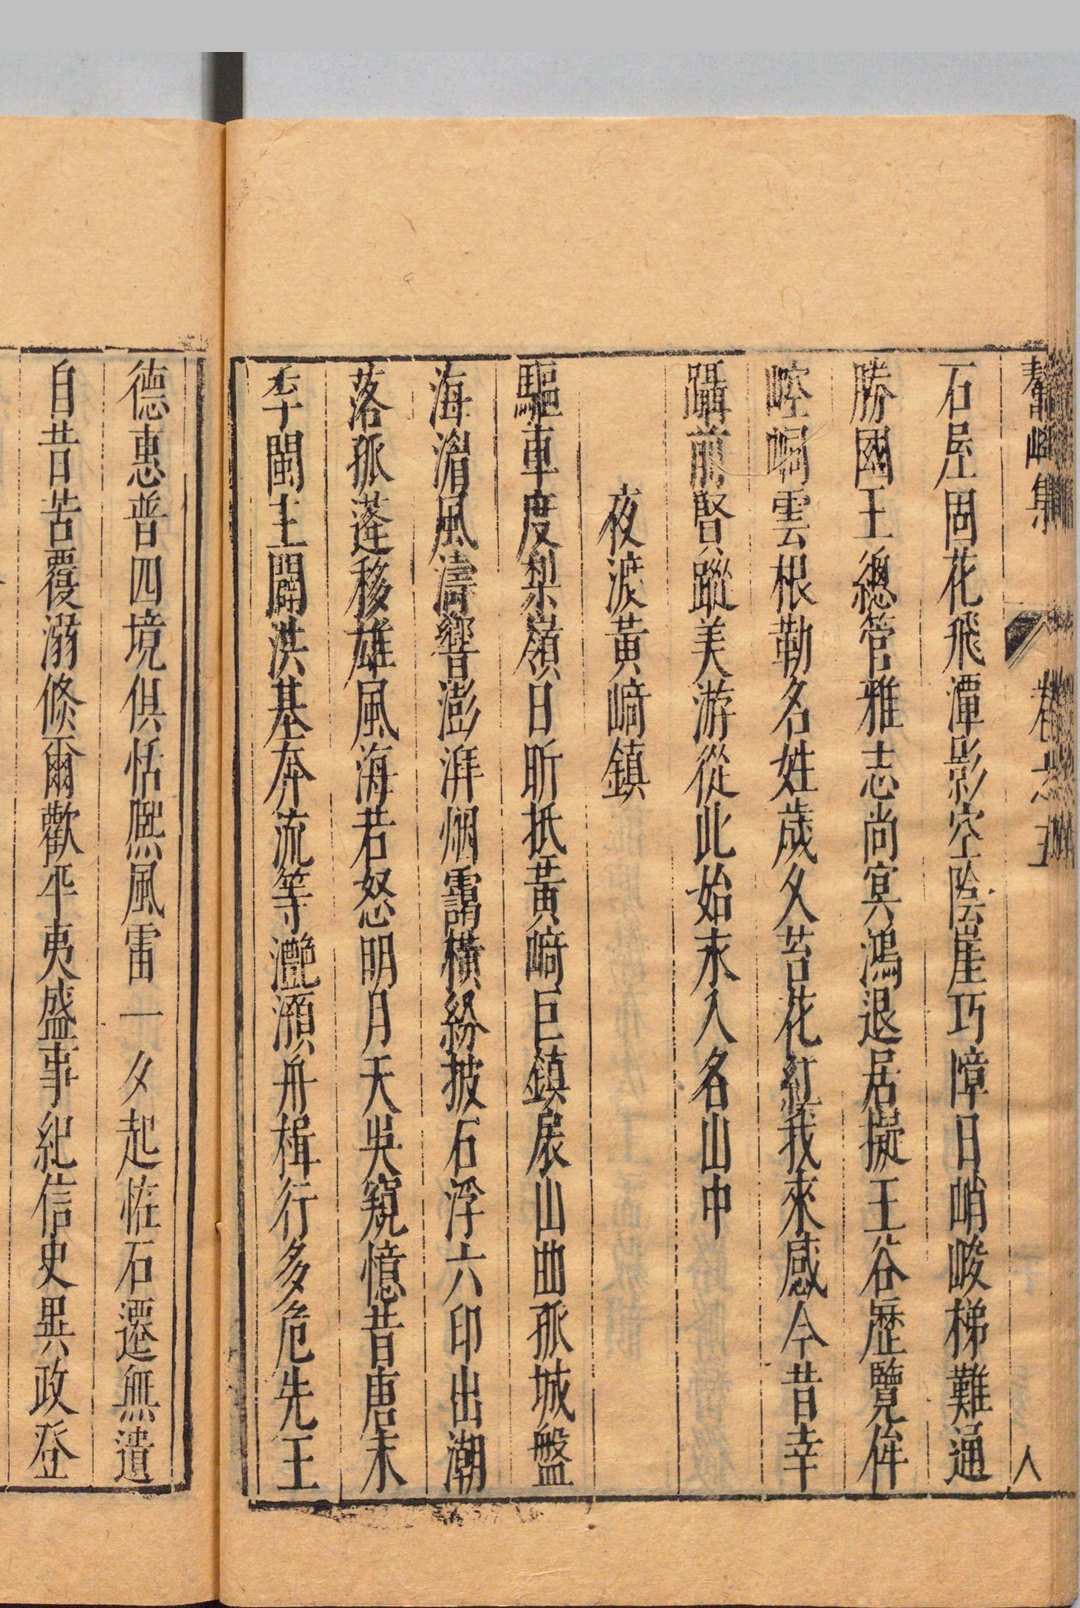 石屋固花飛潭影空陰崖巧障日峭峻梯難通
勝國王總管雅志尚冥鴻退居擬王谷歷覽侔
崆峒雲根勒名姓歲久苔花紅我來感今昔幸
躡前賢蹤美游從此始末入名山中
夜渡黃崎鎮
驅車度梨嶺日昕抵黃崎巨鎮展山曲孤城盤
海湄風濤響澎湃烟靄橫紛披石浮六印出潮
落孤蓬移雄風海若怒明月天吳窺憶昔唐末
季閩主闢洪基奔流等灧澦舟楫行多危先王
德惠普四境俱恬熈風雷一夕起恠石遷無遺
自昔苦覆溺倐爾歡平夷盛事紀信史異政登